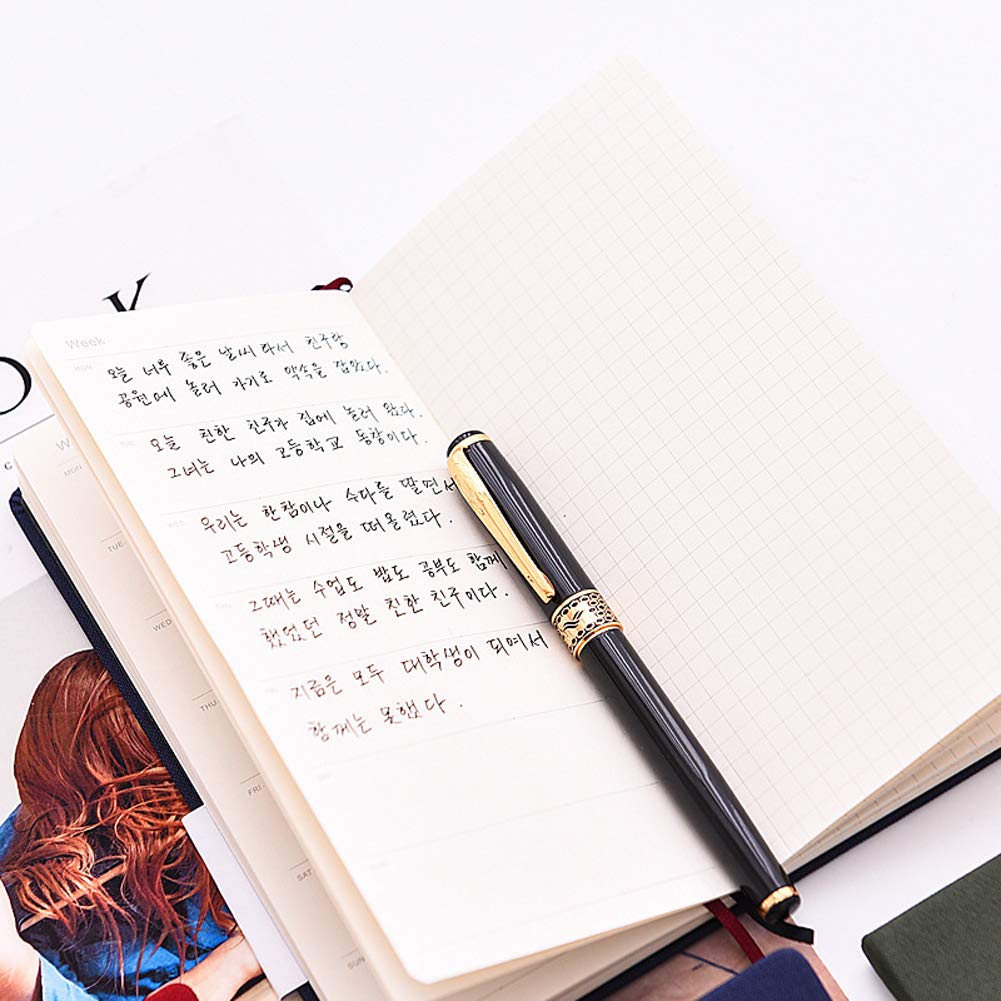 K
O
C
Week
MON
오늘 너무 좋은 날씨라서 친구랑
공원에 놀러 가기로 약속을 잡았다.
TUE
오늘 친한 친구가 집에 놀러 왔다.
그녀는 나의 고등학교 동창이다.
WED
우리는 한참이나 수다를 떨면서
고등학생 시절을 떠올렸다.
THU
그때는 수업도 밥도 공부도 함께
했었던 정말 친한 친구이다.
FRI
지금은 모두 대학생이 되여서
함께는 못했다.
W
MON
TUE
WED
THU
FRI
SAT
SUN